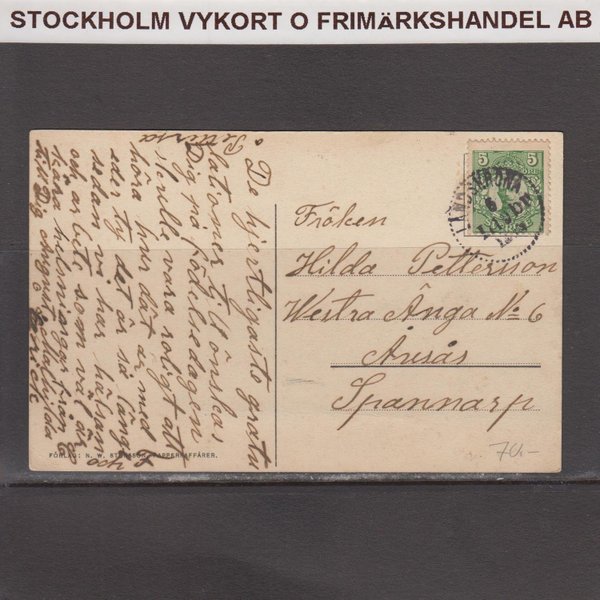 STOCKHOLM VYKORT O FRIMÄRKSHANDEL AB
De hjertligaste gratu
lationer tillönskas
Dig på födelsedagen
skulle vara roligt att
höra hur det är med
eder ty det är så länge
sedan vi har hälsan
och arbete som väl är
kära hälsningar från
till Dig August
Pettersa
5 5
LANDSKRONA
6
Fröken
Hilda Pettersson
Westra Änga No 6
Årsås
Spannarp
FÖRLAG: N. W. PAPPERSAFFÄRER.
70:-